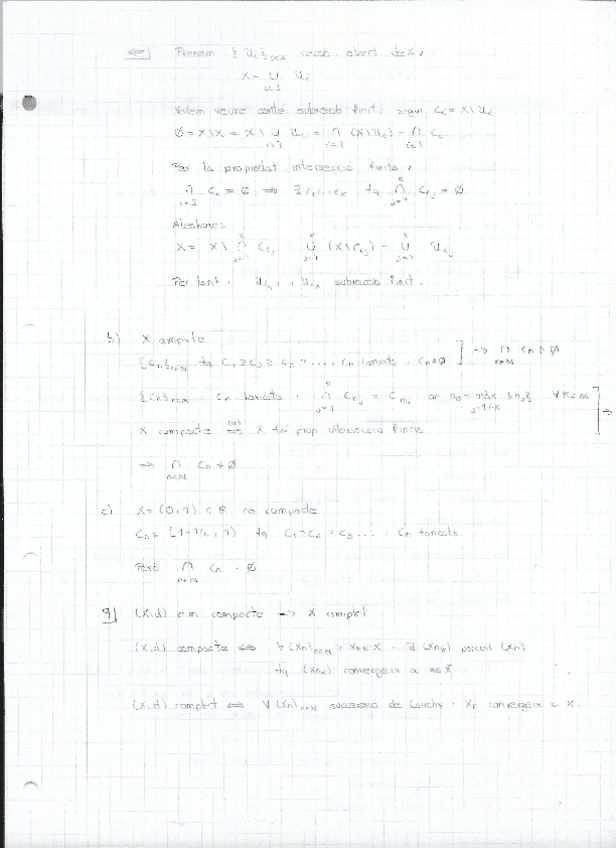 ⇐] Prenem {U_i}_{i∈I} recob. obert de X,
X = ∪_{i∈I} U_i
Volem veure conté subrecob. finit. Sigui C_i = X \ U_i
∅ = X \ X = X \ ∪_{i∈I} U_i = ∩_{i∈I} (X \ U_i) = ∩_{i∈I} C_i
Per la propietat intersecció finita,
∩_{i∈I} C_i = ∅ ⇒ ∃ i_1, ..., i_K tq ∩_{j=1}^K C_{i_j} = ∅
Aleshores
X = X \ ∩_{j=1}^K C_{i_j} = ∪_{j=1}^K (X \ C_{i_j}) = ∪_{j=1}^K U_{i_j}
Per tant, U_{i_1}, ..., U_{i_K} subrecob. finit.
b) X compacte
{C_n}_{n∈N} tq C_1 ⊇ C_2 ⊇ C_3 ⊇ ..., C_n tancats, C_n ≠ ∅ ] ⇒ ∩_{n∈N} C_n ≠ ∅
{C_n}_{n∈N}, C_n tancats, ∩_{j=1}^K C_{n_j} = C_{n_0} on n_0 = màx_{j=1÷K} {n_j} ∀K<∞ ] ⇒
X compacte ⇒ X té prop. intersecció finita
⇒ ∩_{n∈N} C_n ≠ ∅
c) X = (0,1) ⊂ R no compacte
C_n = [1-1/n, 1) tq C_1 ⊃ C_2 ⊃ C_3 ..., C_n tancats
Però ∩_{n∈N} C_n = ∅
9] (X,d) e.m. compacte ⇒ X complet
(X,d) compacte ⇔ ∀ (x_n)_{n∈N}, x_n ∈ X, ∃ (x_{n_k}) parcial (x_n)
tq (x_{n_k}) convergeix a x∈X
(X,d) complet ⇔ ∀ (x_n)_{n∈N} successió de Cauchy, x_n convergeix a x.